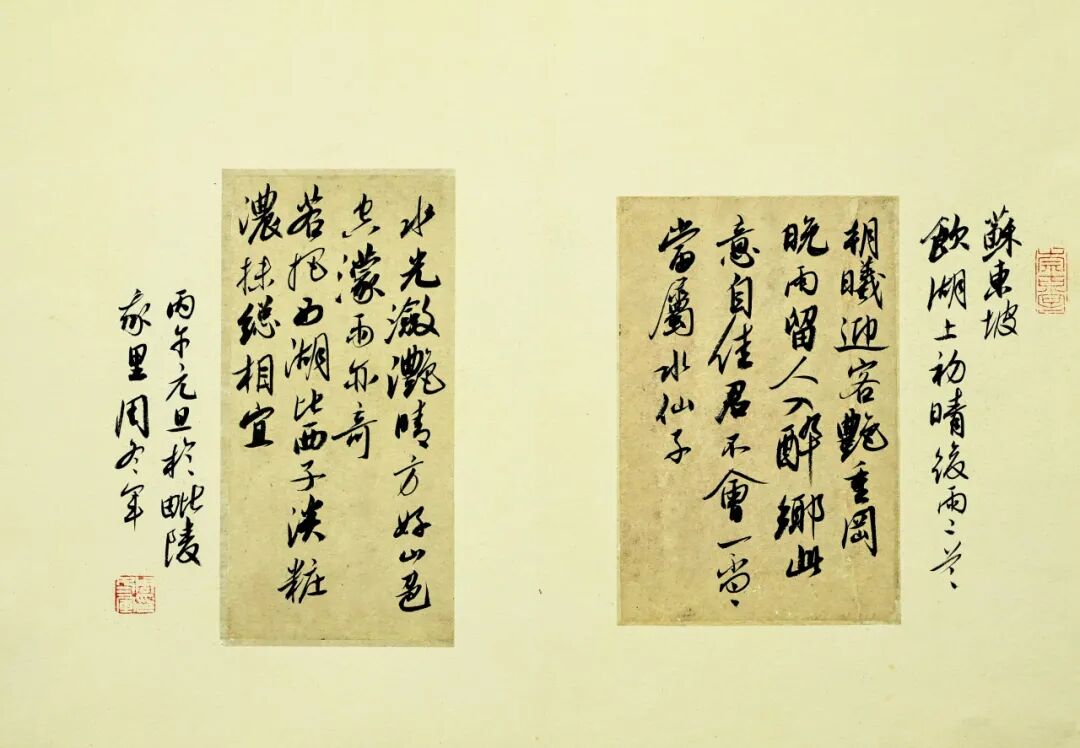 蘇東坡
飲湖上初晴後雨二首
朝曦迎客艷重岡
晚雨留人入醉鄉此
意自佳君不會一
當屬水仙子
水光瀲灩晴方好山色
空濛雨亦奇
若把西湖比西子淡粧
濃抹總相宜
丙午元旦於毗陵
里周